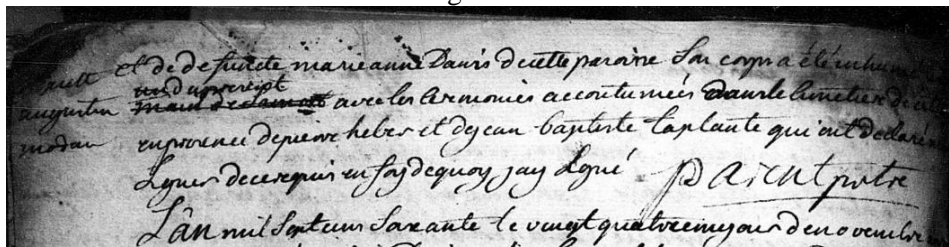 et de defuncte marie anne Davis de cette paroisse Son corps a été inhumé
augustin avec les Ceremonies accoutumées dans le Cimetiere de cette
modau en presence de pierre heber et de jean baptiste laplante qui ont declaré ne
Signer de ce requis en foy de quoy jay Signé Parent ptre
L'an mil Sept cens Soixante le vingt quatreieme jour de novembre